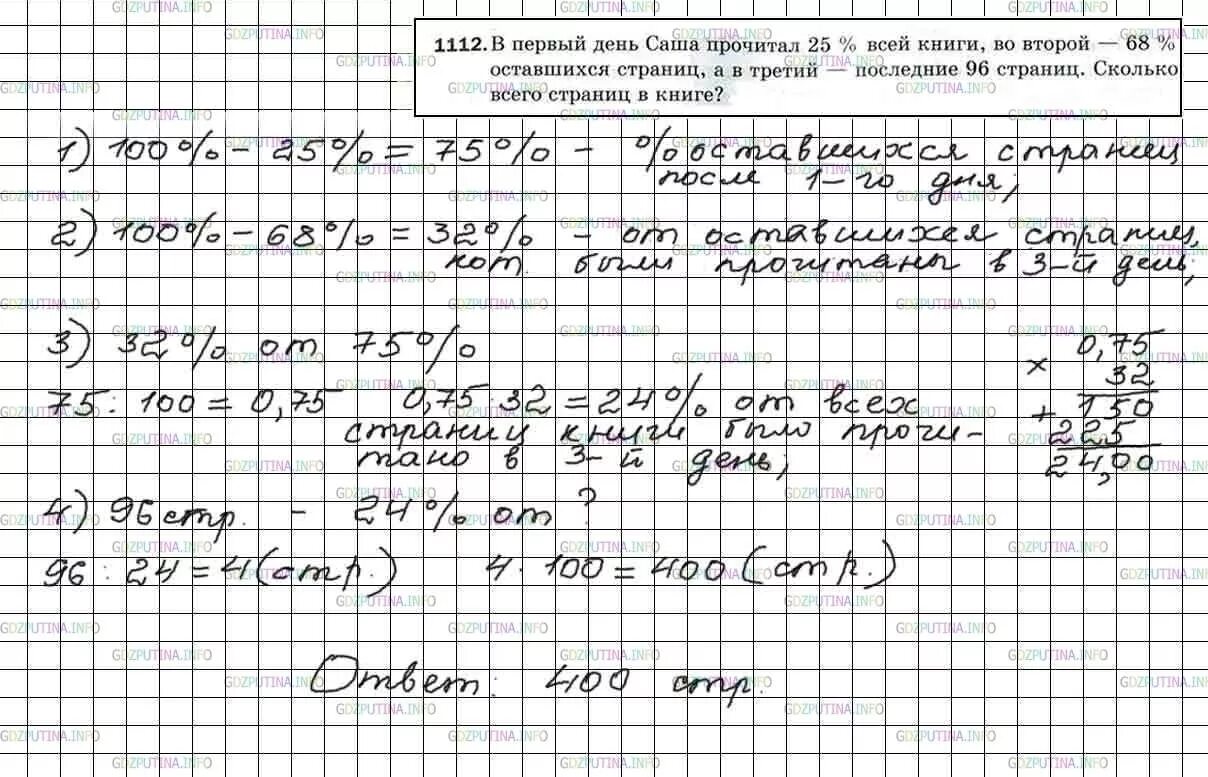 1112. В первый день Саша прочитал 25 % всей книги, во второй — 68 %
оставшихся страниц, а в третий — последние 96 страниц. Сколько
всего страниц в книге?
1) 100% - 25% = 75% - % оставшихся страниц
после 1-го дня;
2) 100% - 68% = 32% - от оставшихся страниц,
кот. были прочитаны в 3-й день;
3) 32% от 75%
75 : 100 = 0,75 0,75 · 32 = 24% от всех
страниц книги было прочи-
тано в 3-й день;
0,75
× 32
+ 150
225
24,00
4) 96 стр. - 24% от ?
96 : 24 = 4 (стр.) 4 · 100 = 400 (стр.)
Ответ: 400 стр.
GDZPUTINA.INFO